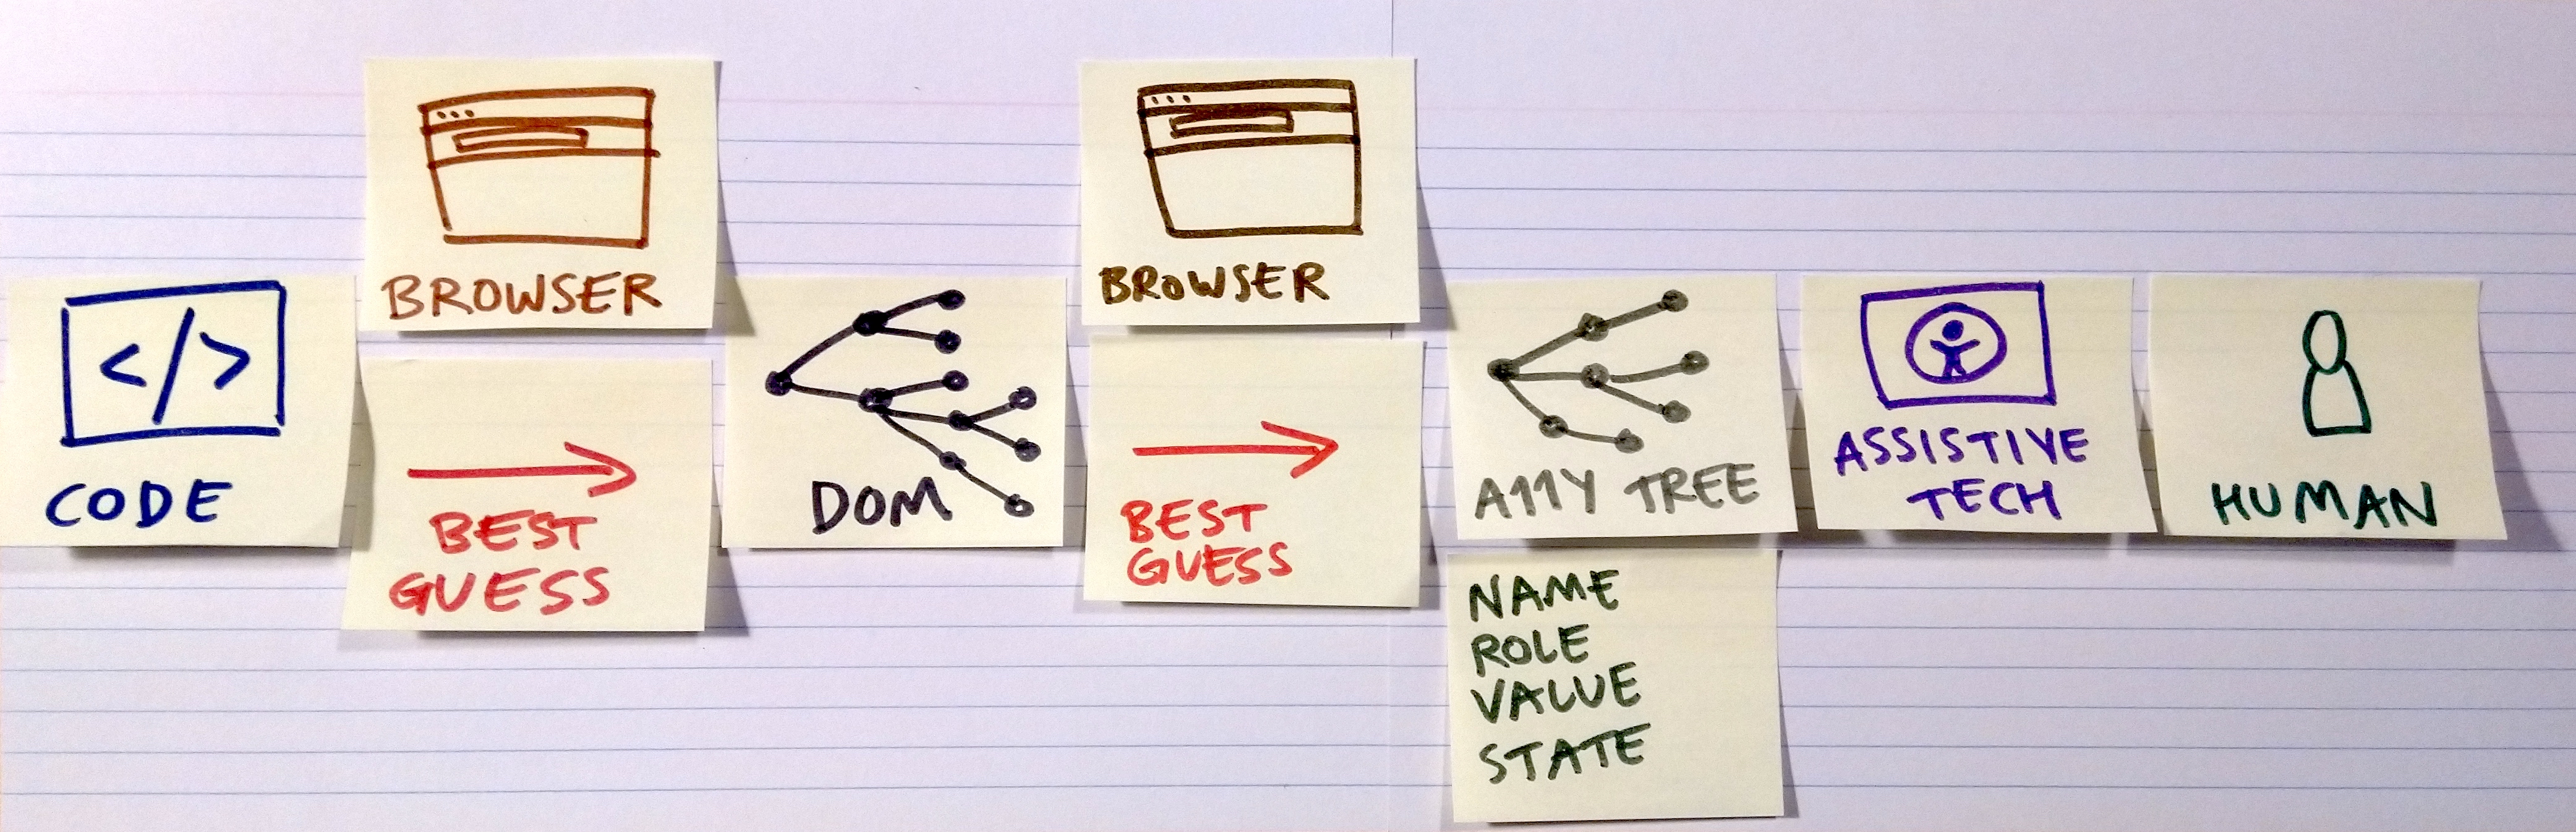 </>
CODE
BROWSER
BEST
GUESS
DOM
BROWSER
BEST
GUESS
A11Y TREE
NAME
ROLE
VALUE
STATE
ASSISTIVE
TECH
HUMAN